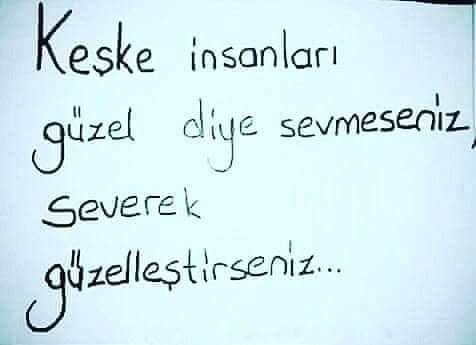 Keşke insanları
güzel diye sevmeseniz,
severek
güzelleştirseniz...